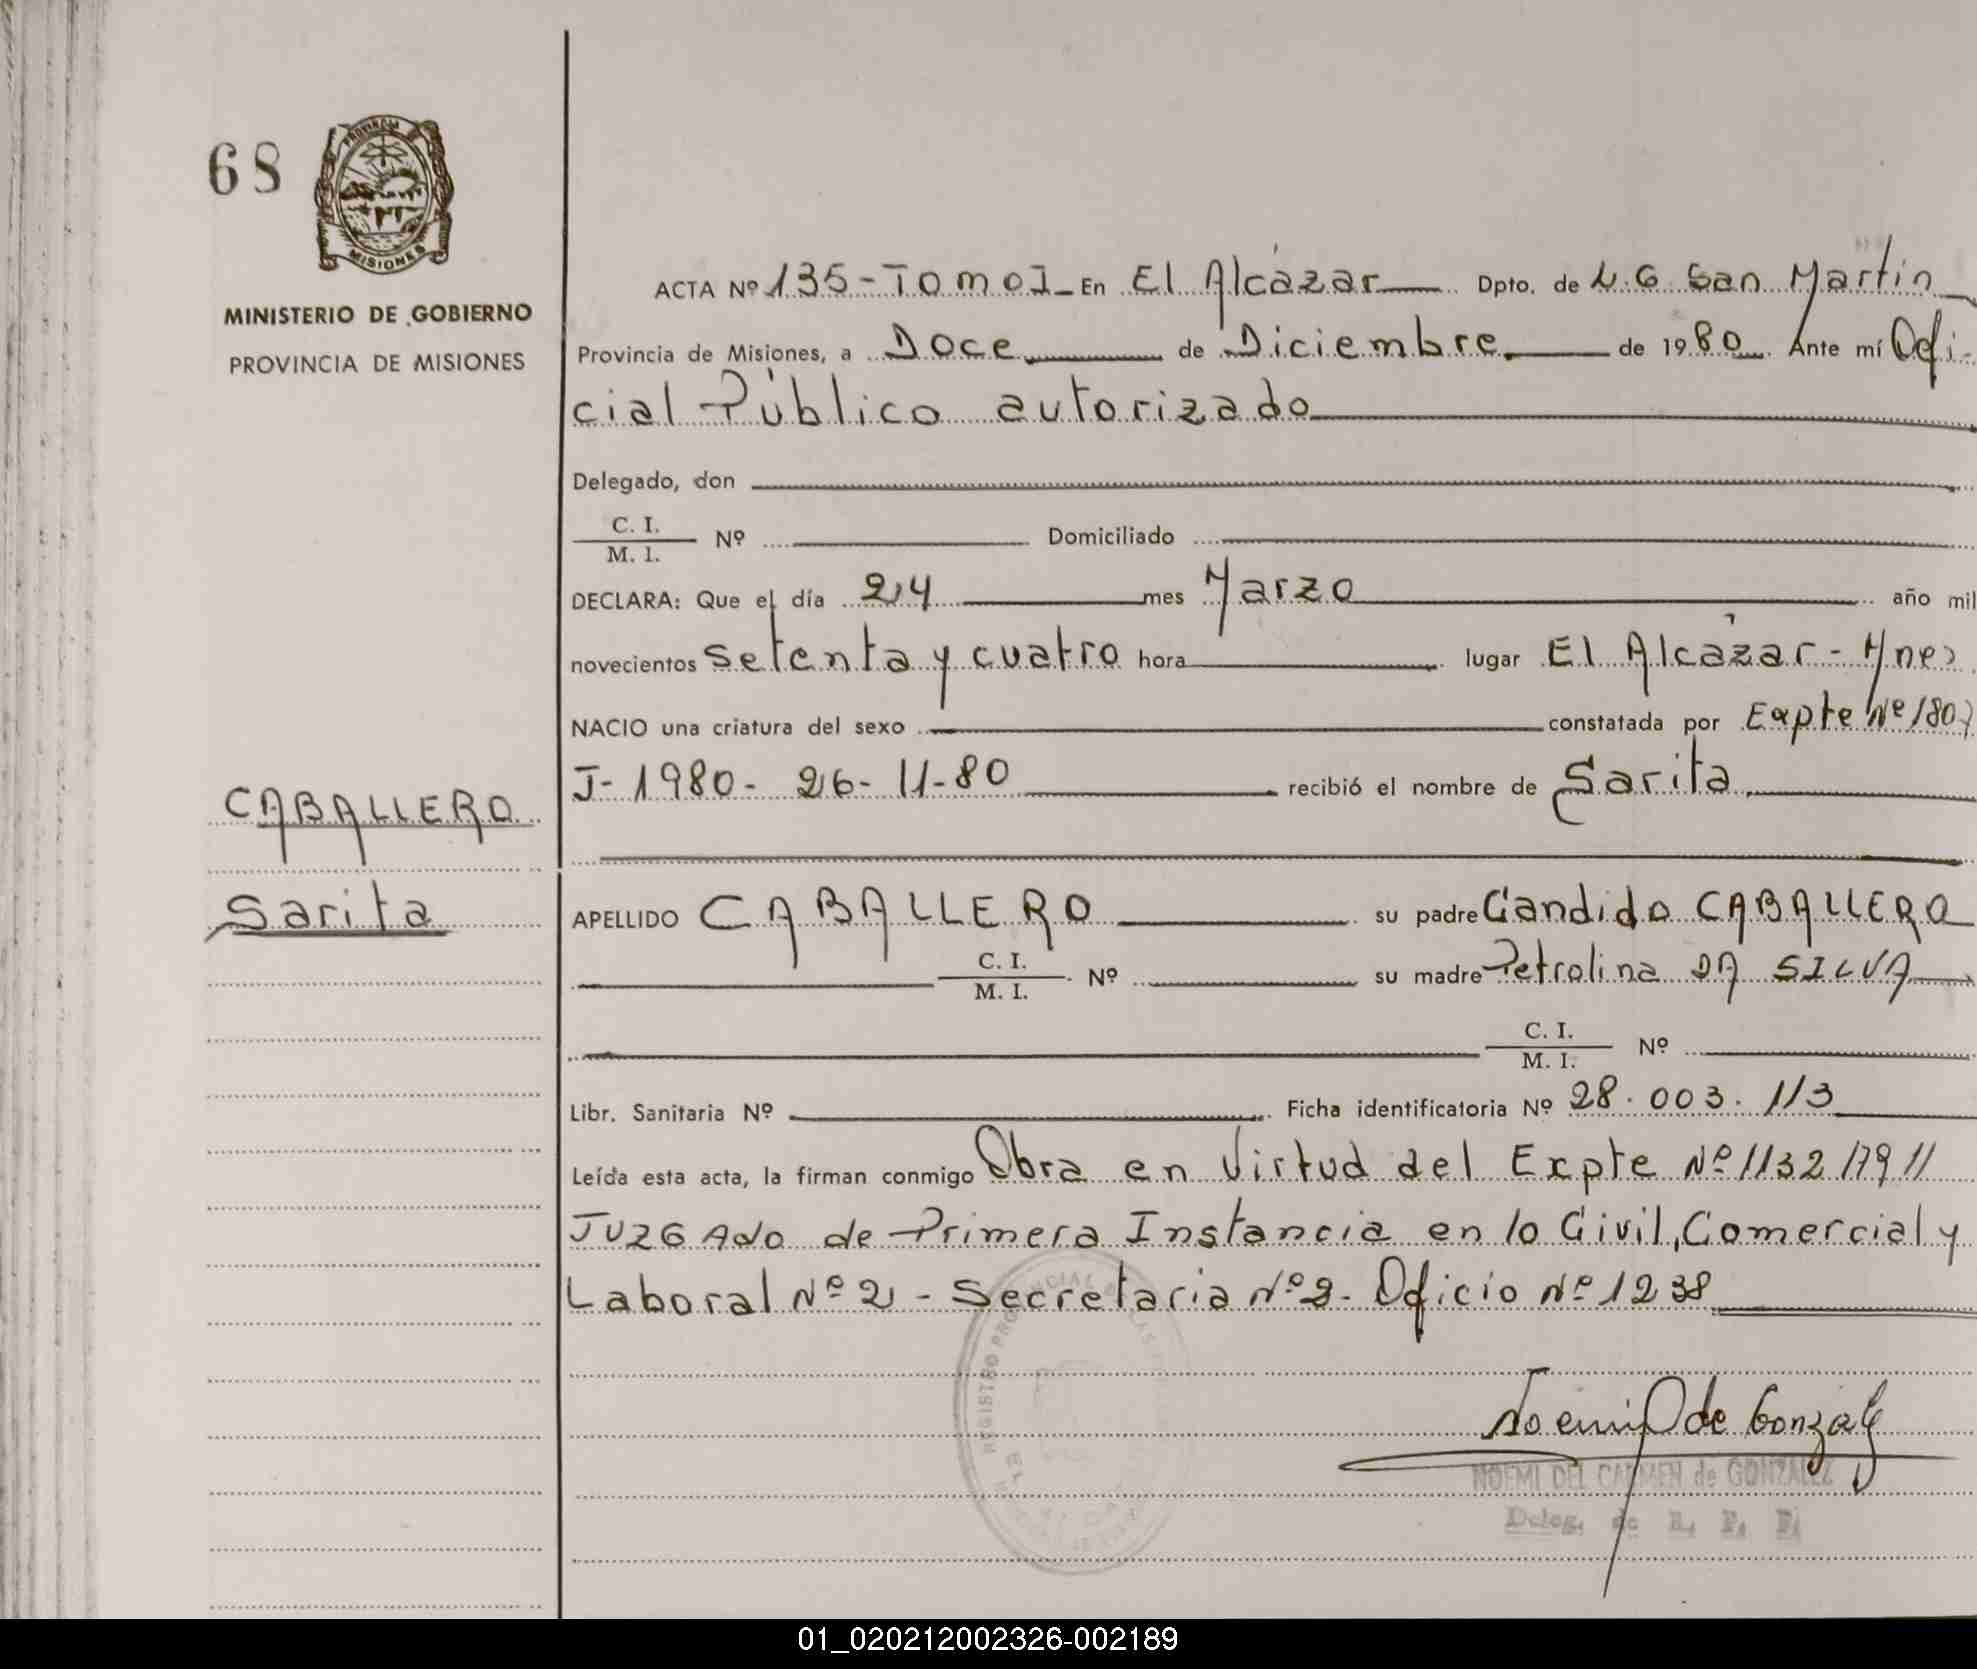 68
PROVINCIA
MISIONES
MINISTERIO DE GOBIERNO
PROVINCIA DE MISIONES
CABALLERO
Sarita
ACTA Nº 135-Tomo I En El Alcázar Dpto. de L.G. San Martín
Provincia de Misiones, a Doce de Diciembre de 1980. Ante mí Ofi-
cial Público autorizado
Delegado, don
C. I.
M. I. Nº Domiciliado
DECLARA: Que el día 24 mes Marzo año mil
novecientos setenta y cuatro hora lugar El Alcázar - Mnes
NACIO una criatura del sexo constatada por Expte Nº 1807
J-1980- 26-11-80 recibió el nombre de Sarita
APELLIDO CABALLERO su padre Candido CABALLERO
C. I.
M. I. Nº su madre Petrolina DA SILVA
C. I.
M. I. Nº
Libr. Sanitaria Nº Ficha identificatoria Nº 28.003.113
Leída esta acta, la firman conmigo Obra en Virtud del Expte Nº 1132/79//
JUZGAdo de Primera Instancia en lo Civil, Comercial y
Laboral Nº 2 - Secretaria Nº 2. Oficio Nº 1238
REGISTRO PROVINCIAL DE LAS
Noemi de Gonzalez
NOEMI DEL CARMEN de GONZALEZ
Deleg. de R. P. P.
01_020212002326-002189